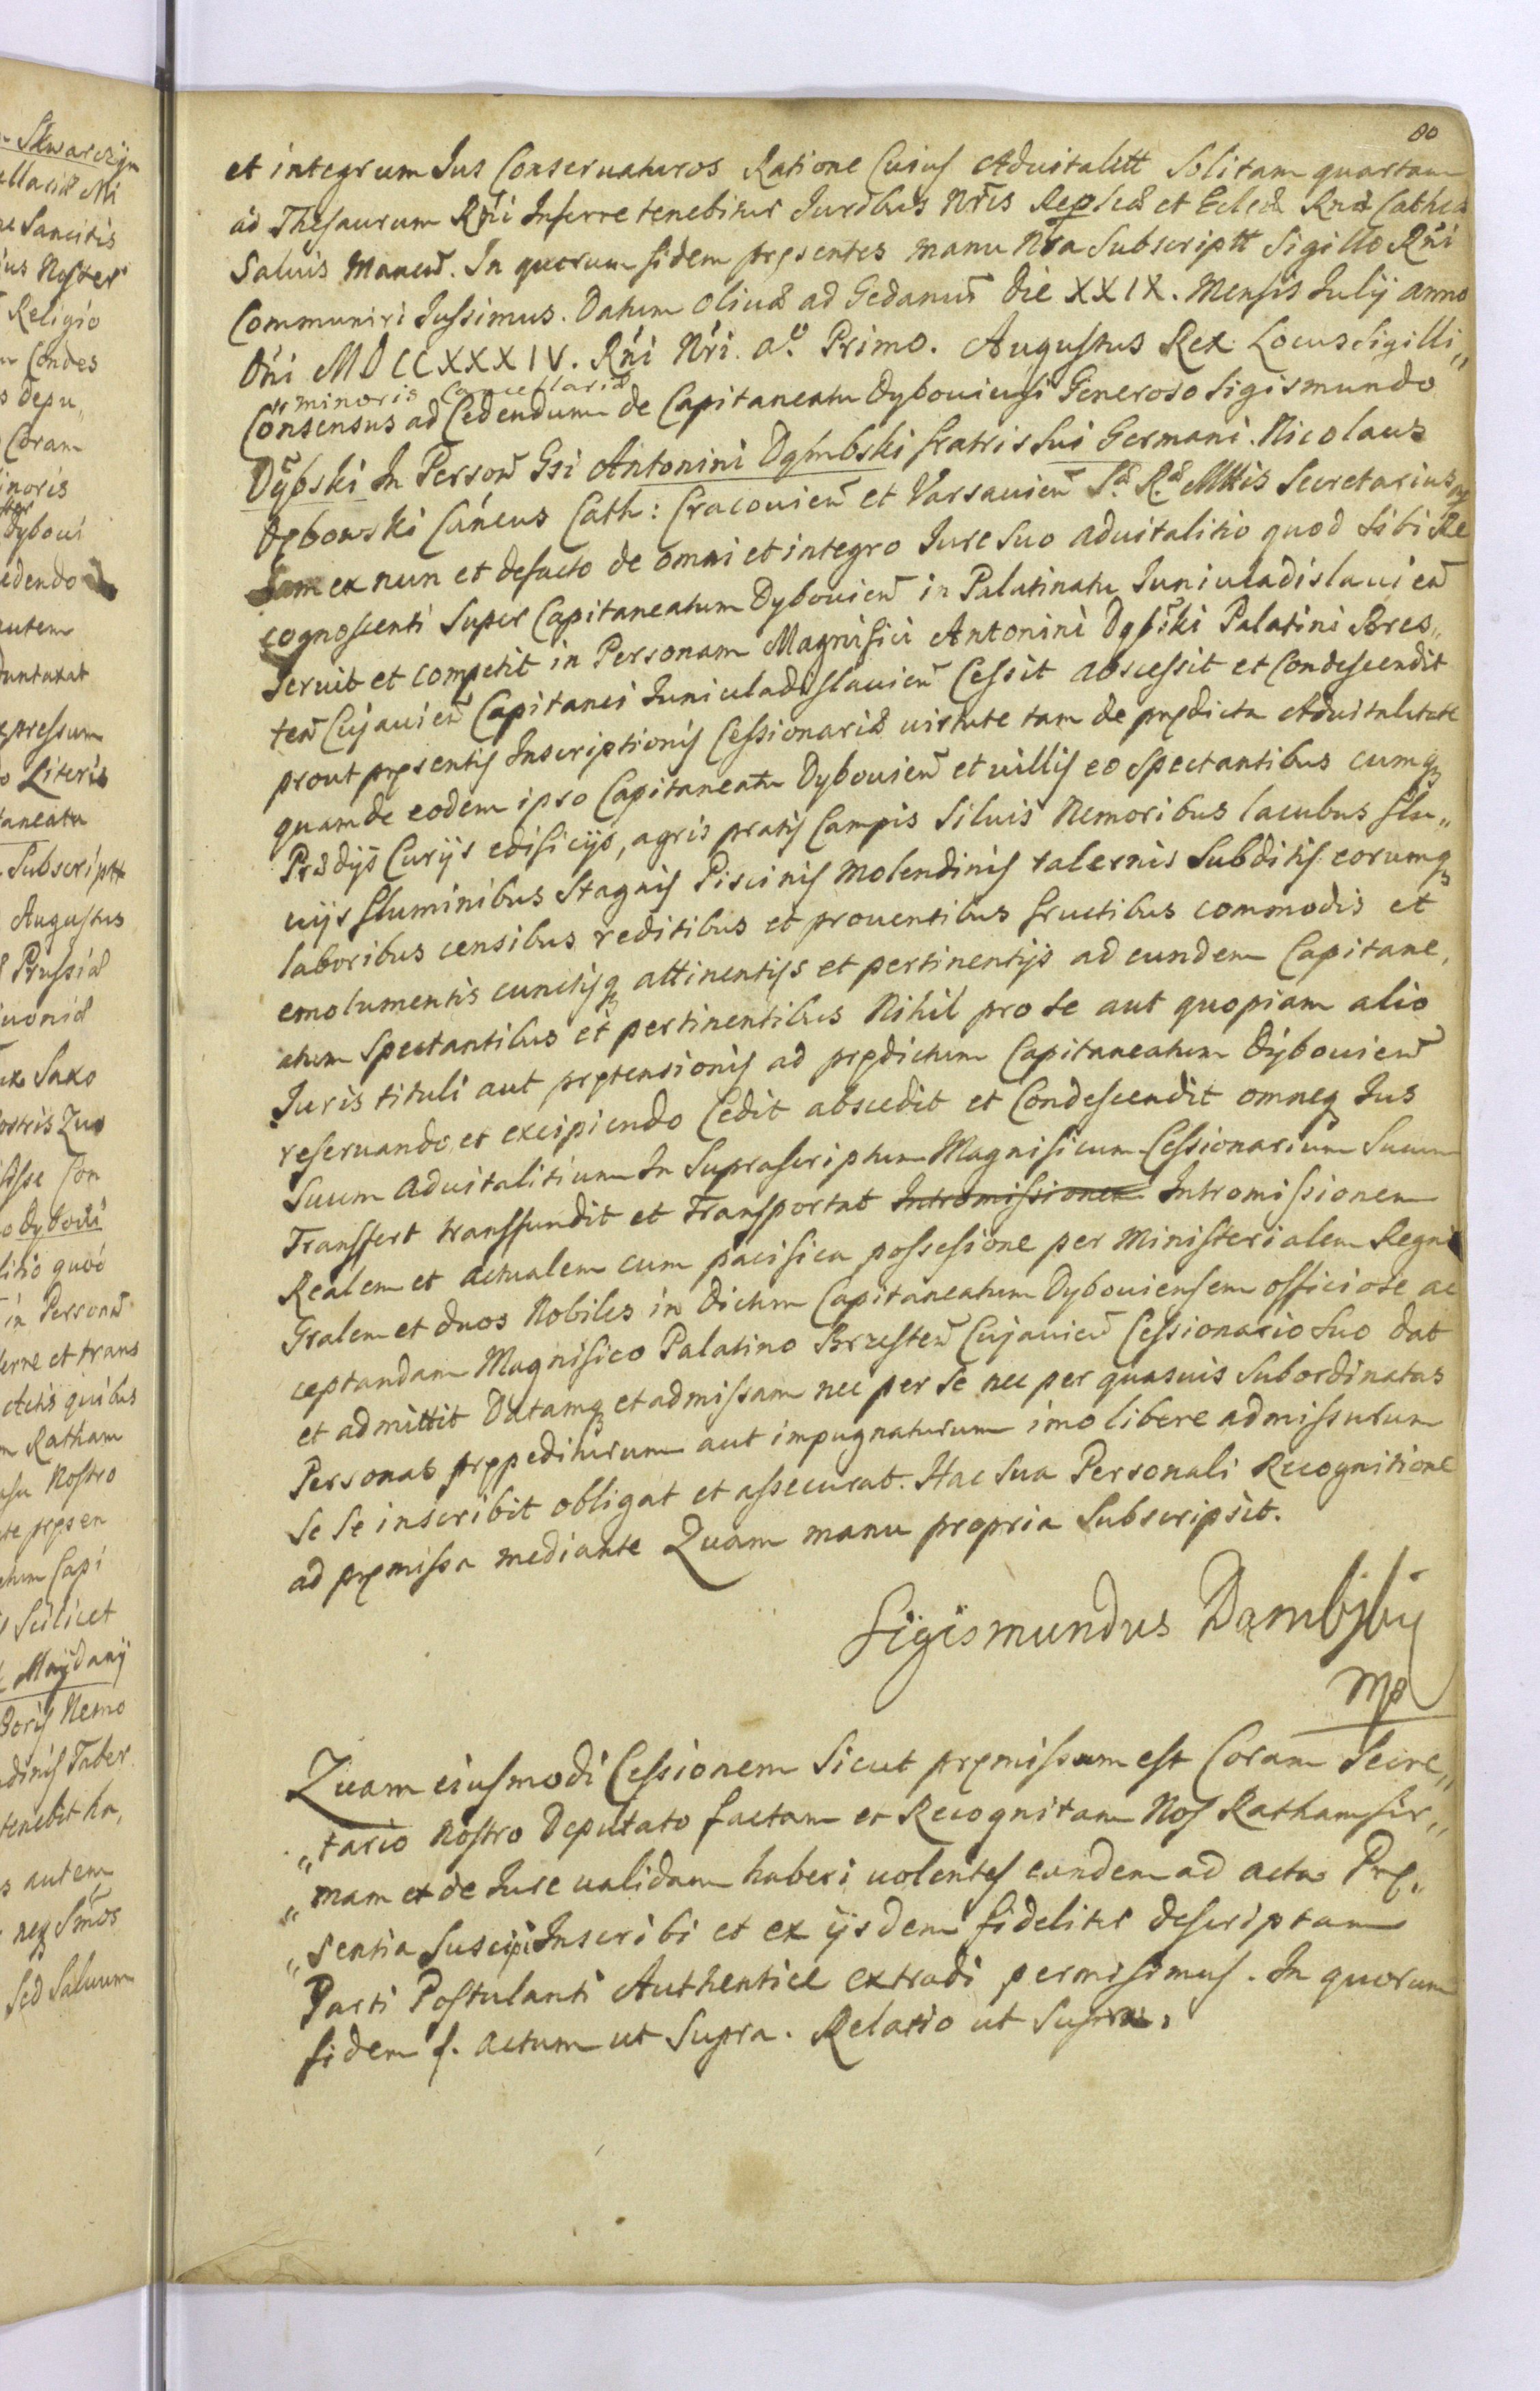 80
et integrum Jus Conservaturos Ratione Cuius Advitalitt Solitam quartam
ad Thesaurum Rñi Inferre tenebitur Juribus Nris Reipscæ et Eclecæ Rnæ Cathca
Salvis Manen̄. In quorum fidem pręsentes manu Nra Subscriptt Sigillo Rñi
Communiri Jussimus. Datum Olivæ ad Gedanum̄ Die XXIX. Mensis Julij anno
Dñi MDCCXXXIV. Rñi Nri. ao. Primo. Augustus Rex Locus Sigilli,,
,,minoris Cancellariæ
Consensus ad Cedendum de Capitaneatu Dyboviensi Generoso Sigismundo
Dębski In Person̄ Gsi Antonini Dęmbski fratris Sui Germani. Nicolaus
Dębowski Cancus Cath: Cracovien̄ et Varsavien̄ Sæ Ræ Mttis Secretarius mp
Jam ex nun et defacto de omni et integro Jure Suo advitalitio quod Sibi Re
cognoscenti Super Capitaneatum Dybovien̄ in Palatinatu Juniuladislavien̄
Servit et competit in Personam Magnifici Antonini Dębski Palatini Bres,,
ten̄ Cujavien̄ Capitanei Juniuladislavien̄ Cessit abscessit et Condescendit
prout pręsentis Inscriptionis Cessionariæ virtute tam de prędicta Advitalitate
quam de eodem ipso Capitaneatu Dybovien̄ et villis eo Spectantibus cumq
Prædijs Curijs edificijs, agris pratis Campis Silvis Nemoribus lacubus flu,,
vijs fluminibus Stagnis Piscinis Molendinis tabernis Subditis eorumq
laboribus censibus reditibus et proventibus fructibus commodis et
emolumentis cunctisq attinentijs et pertinentijs ad eundem Capitane,
atum Spectantibus et pertinentibus Nihil pro Se aut quopiam alio
Juris tituli aut prętensionis ad prędictum Capitaneatum Dybovien̄
reservando et excipiendo Cedit abscedit et Condescendit omneq Jus
Suum advitalitium In Suprascriptum Magnificum Cessionarium Suum
Transfert transfundit et Transportat Intromissionem Intromissionem
Realem et actualem cum pacifica possesione per Ministerialem Regni
Gralem et duos Nobiles in dictum Capitaneatum Dyboviensem officiose ac
ceptandam Magnifico Palatino Brzesten̄ Cujavien̄ Cessionario Suo dat
et admittit Datamq et admissam nec per Se nec per quasvis Subordinatas
Personas pręppediturum aut impugnaturum imo libere admissurum
Se Se inscribit obligat et assecurat. Hac Sua Personali Recognitione
ad pręmissa mediante Quam manu propria Subscripsit.
Sigismundus Dąmbsky
mp
Quam eiusmodi Cessionem Sicut pręmissum est Coram Secre,,
,,tario Nostro Deputato factam et Recognitam Nos Ratham fir,,
,,mam et de Jure validam haberi volentes eundem ad acta Prę,,
,,sentia Suscipi Inscribi et ex ijsdem fideliter descriptam
Parti Postulanti Authentice extradi permisimus. In quorum
fidem f. actum ut Supra. Relatio ut Supra.